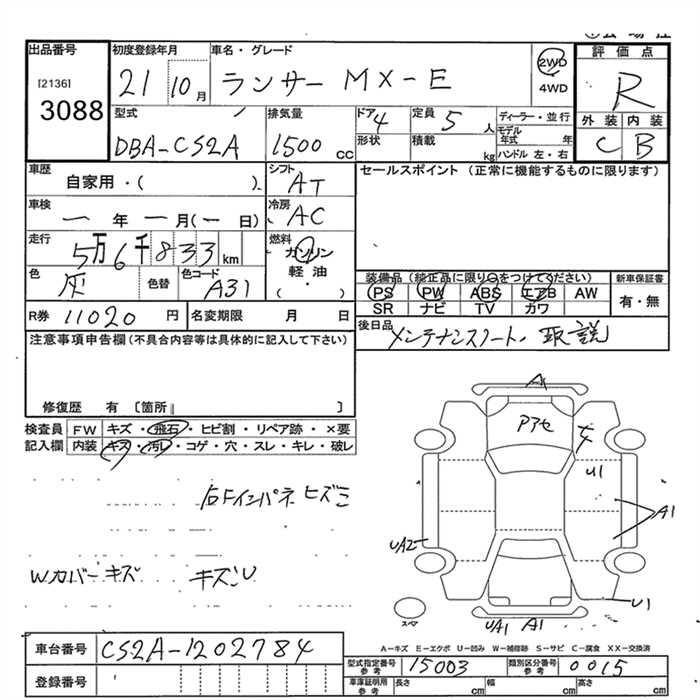 出品番号 初度登録年月 車名・グレード 評価点
[2136] 21 10月 ランサー MX-E 2WD R
3088 4WD
型式 排気量 ドア 4 定員 5人 ディーラー・並行 外装 内装
DBA-CS2A 1500cc 形状 積載 kg モデル年式 年 C B
ハンドル 左・右
車歴 シフト セールスポイント（正常に機能するものに限ります）
自家用・( ) AT
車検 冷房
一年一月(一日) AC
走行 燃料
5万6千833km ガソリン
色 灰 色替 色コード A31 軽油
( ・ )
装備品（純正品に限り○をつけてください） 新車保証書
PS PW ABS エアB AW 有・無
SR ナビ TV カワ
R券 11020円 名変期限 月 日 後日品
メンテナンスノート、取説
注意事項申告欄（不具合内容等は具体的に記入して下さい）
修復歴 有 〔箇所 〕
検査員 FW キズ・飛石・ヒビ割・リペア跡・×要
記入欄 内装 キズ・汚レ・コゲ・穴・スレ・キレ・破レ
右Fインパネ ヒズミ
Wカバーキズ キズU
A1
Pアセ
U1
A1
UA2
U1
スペア
UA1 A1
A-キズ E-エクボ U-凹み W-補修跡 S-サビ C-腐食 XX-交換済
車台番号 CS2A-1202784 型式指定番号 参考 15003 類別区分番号 参考 0015
登録番号 車庫証明用 参考 長さ cm 幅 cm 高さ cm